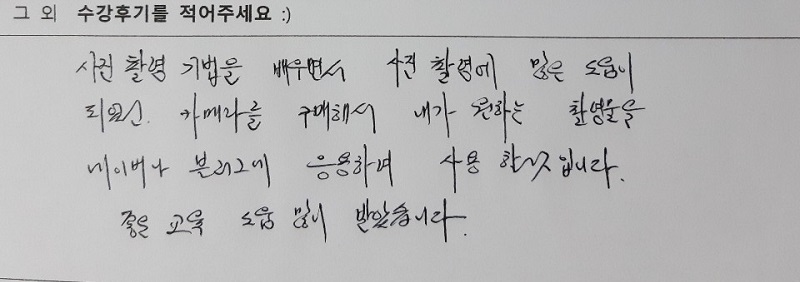 그 외 수강후기를 적어주세요 :)
사진 촬영 기법을 배우면서 사진 촬영에 많은 도움이
되었고. 카메라를 구매해서 내가 원하는 촬영물을
네이버나 블러그에 응용하며 사용 할것입니다.
좋은 교육 도움 많이 받았습니다.